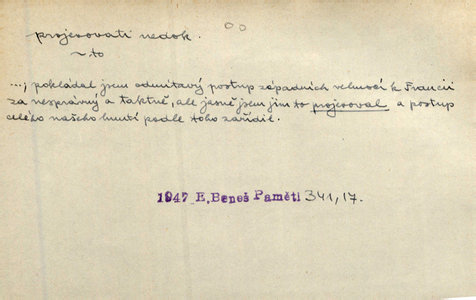 projevovati nedok.
~ to
...; pokládal jsem odmítavý postup západních velmocí k Francii
za nesprávný a taktně, ale jasně jsem jim to projevoval a postup
celého našeho hnutí podle toho zařídil.
1947 E. Beneš Paměti 341, 17.